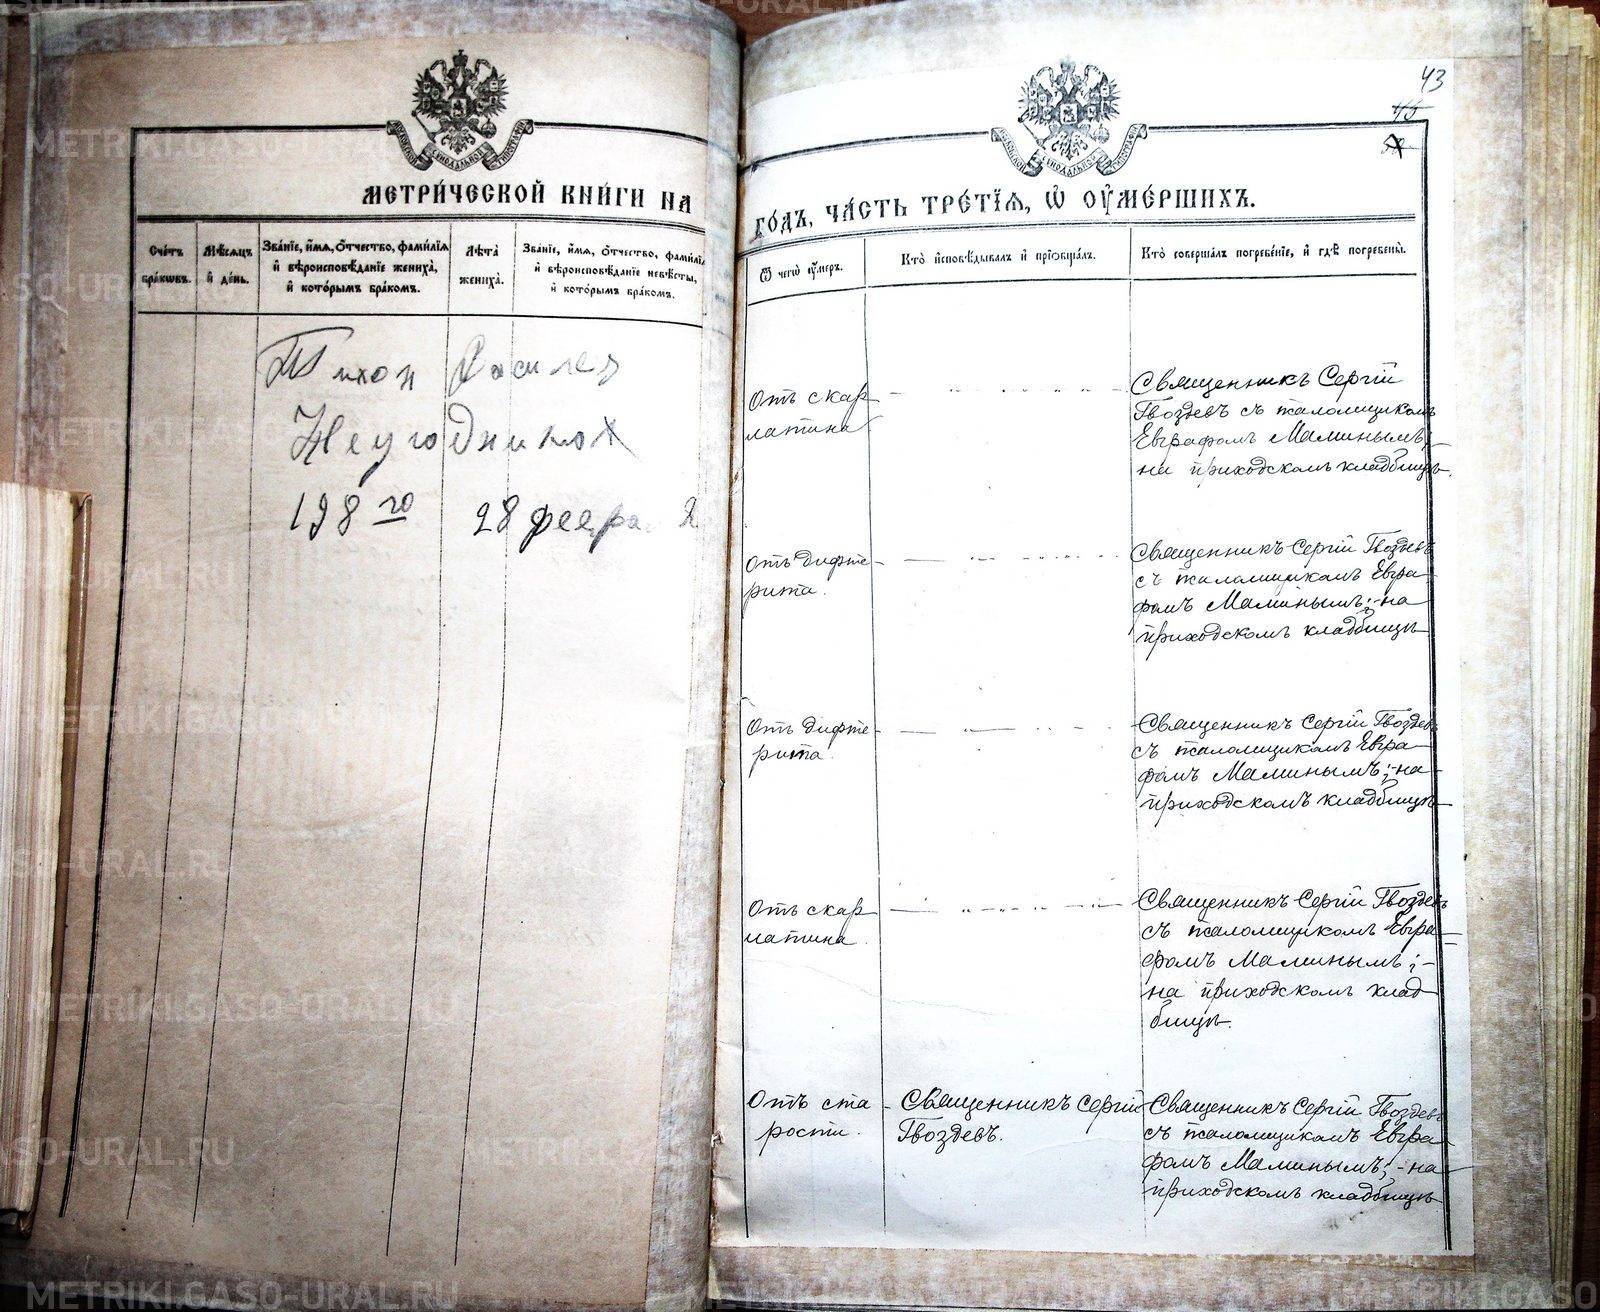 МЕТРИ́ЧЕСКОЙ КНИ́ГИ НА
Сче́тъ бра́ковъ.
Мѣ́сяцъ и҆ де́нь.
Зва́нїе, и҆́мя, ѻ҆́тчество, фами́лїя
и҆ вѣроисповѣ́данїе жениха̀,
и҆ кото́рымъ бра́комъ.
Лѣ́та жениха̀.
Зва́нїе, и҆́мя, ѻ҆́тчество, фами́лїя
и҆ вѣроисповѣ́данїе невѣ́сты,
и҆ кото́рымъ бра́комъ.
Тихон
Неугодников
28
43
45
ГО́ДЪ, ЧА́СТЬ ТРЕ́ТЇЯ, Ѡ҆ ОУ҆МЕ́РШИХЪ.
Ѿ чегѡ̀ оу҆́меръ.
Кто̀ и҆сповѣ́дывалъ и҆ прїѻбща́лъ.
Кто̀ соверша́лъ погребе́нїе, и҆ гдѣ̀ погребены̀.
Отъ скар
латина
Священникъ Сергій
Гвоздевъ съ псаломщикомъ
Евграфомъ Маминымъ;
на приходскомъ кладбищѣ
Отъ дифте
рита.
Священникъ Сергій Гвоздевъ
съ псаломщикомъ Евгра
фомъ Маминымъ; на
приходскомъ кладбищѣ
Отъ дифте
рита.
Священникъ Сергій Гвоздевъ
съ псаломщикомъ Евгра
фомъ Маминымъ; на
приходскомъ кладбищѣ
Отъ скар
латина.
Священникъ Сергій Гвоздевъ
съ псаломщикомъ Евгра
фомъ Маминымъ;
на приходскомъ клад
бищѣ.
Отъ ста
рости.
Священникъ Сергій
Гвоздевъ.
Священникъ Сергій Гвоздевъ
съ псаломщикомъ Евгра
фомъ Маминымъ; на
приходскомъ кладбищѣ
METRIKI.GASO-URAL.RU